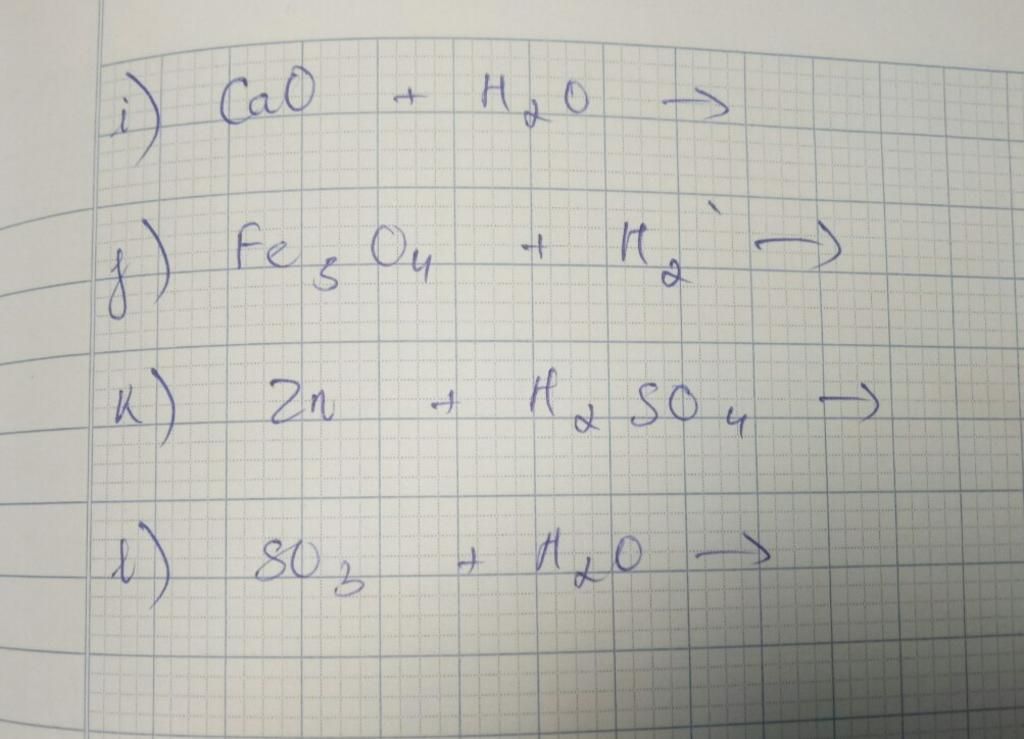 i) CaO + H₂O →
j) Fe₃O₄ + H₂ →
k) Zn + H₂SO₄ →
l) SO₃ + H₂O →